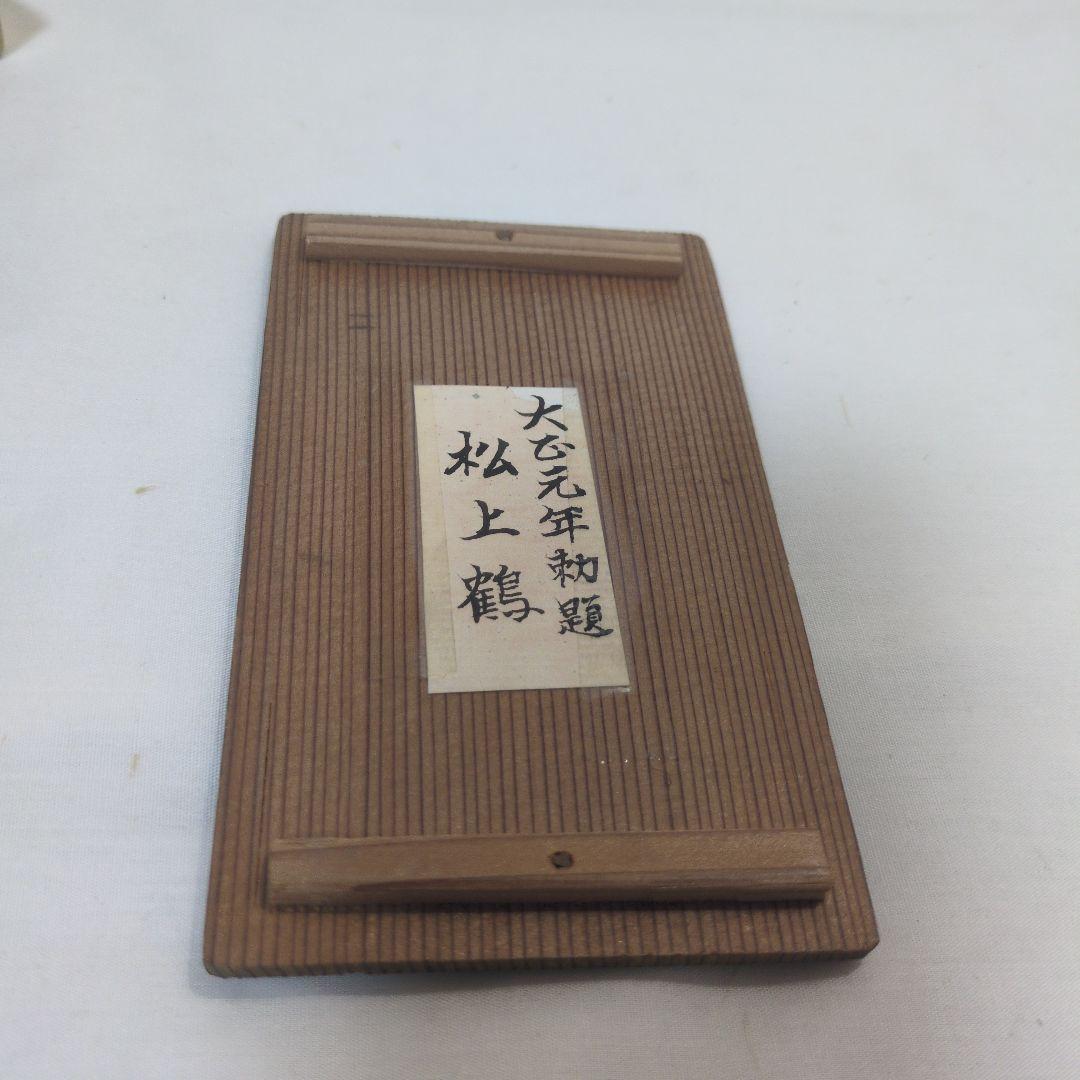 大正元年勅題
松上鶴